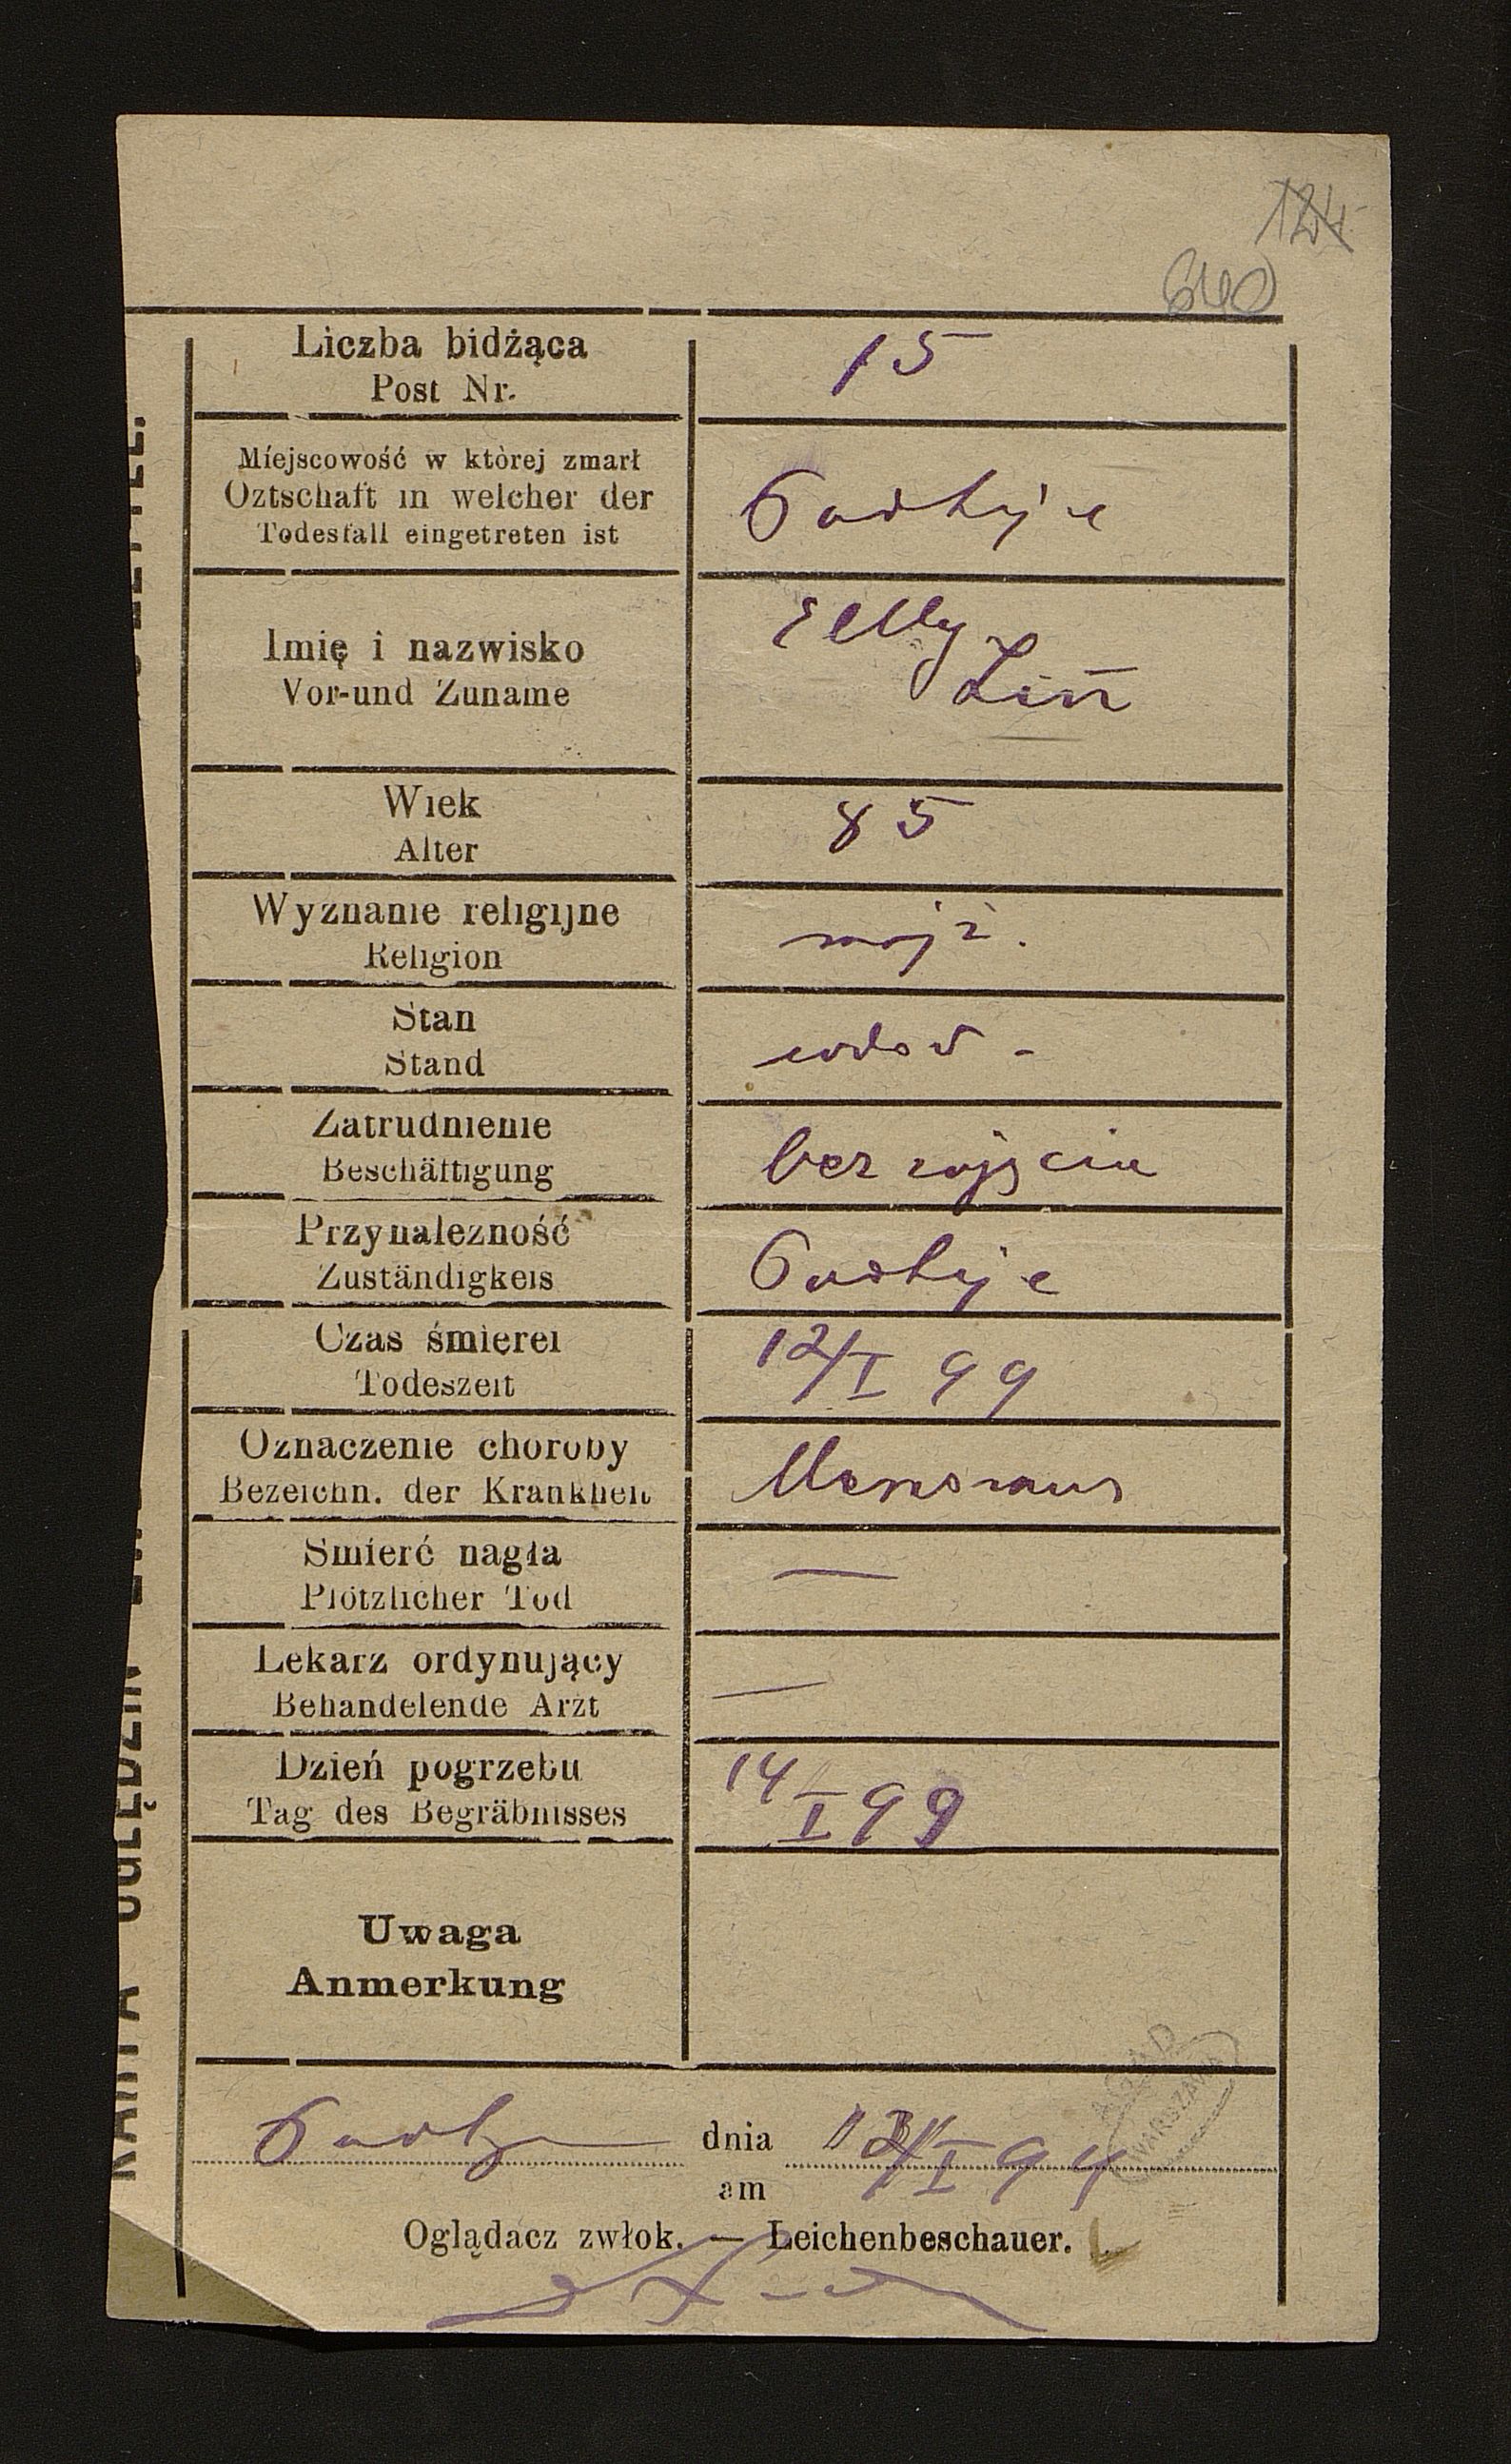 124
640
Liczba bidżąca
Post Nr.
15
Miejscowość w ktòrej zmarł
Oztschaft in welcher der
Todesfall eingetreten ist
Imię i nazwisko
Vor-und Zuname
Wiek
Alter
85
Wyznanie religijne
Religion
mojż.
Stan
Stand
wdow -
Zatrudnienie
Beschäftigung
bez zajęcia
Przynalezność
Zuständigkeis
Czas śmierei
Todeszeit
12/I 99
Oznaczenie choroby
Bezeichn. der Krankheit
Smierć nagła
Plötzlicher Tod
—
Lekarz ordynujący
Behandelende Arzt
—
Dzień pogrzebu
Tag des Begräbnisses
14/I 99
Uwaga
Anmerkung
dnia
am
Oglądacz zwłok. — Leichenbeschauer.
AGAD
WARSZAWA
KARTA OGLĘDZIN